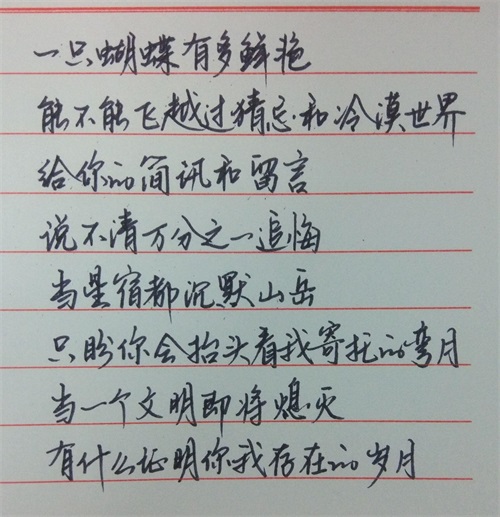 一只蝴蝶有多鲜艳
能不能飞越过猜忌和冷漠世界
给你的简讯和留言
说不清万分之一追悔
当星宿都沉默山岳
只盼你会抬头看我寄托的弯月
当一个文明即将熄灭
有什么证明你我存在的岁月